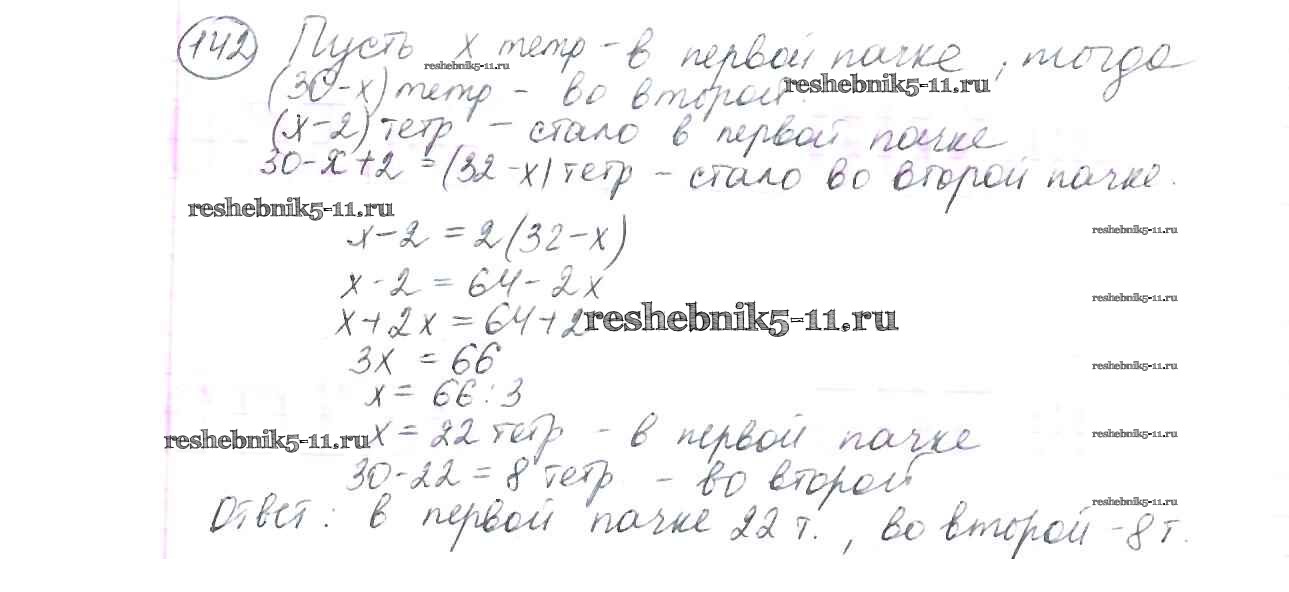 142 Пусть х тетр - в первой пачке, тогда
reshebnik5-11.ru
(30-х) тетр - во второй.
reshebnik5-11.ru
(х-2) тетр - стало в первой пачке
30-х+2 = (32-х) тетр - стало во второй пачке.
reshebnik5-11.ru
х-2 = 2(32-х)
reshebnik5-11.ru
х-2 = 64-2х
reshebnik5-11.ru
х+2х = 64+2
reshebnik5-11.ru
3х = 66
reshebnik5-11.ru
х = 66:3
х = 22 тетр - в первой пачке
reshebnik5-11.ru
reshebnik5-11.ru
30-22 = 8 тетр - во второй
reshebnik5-11.ru
Ответ: в первой пачке 22 т., во второй - 8 т.